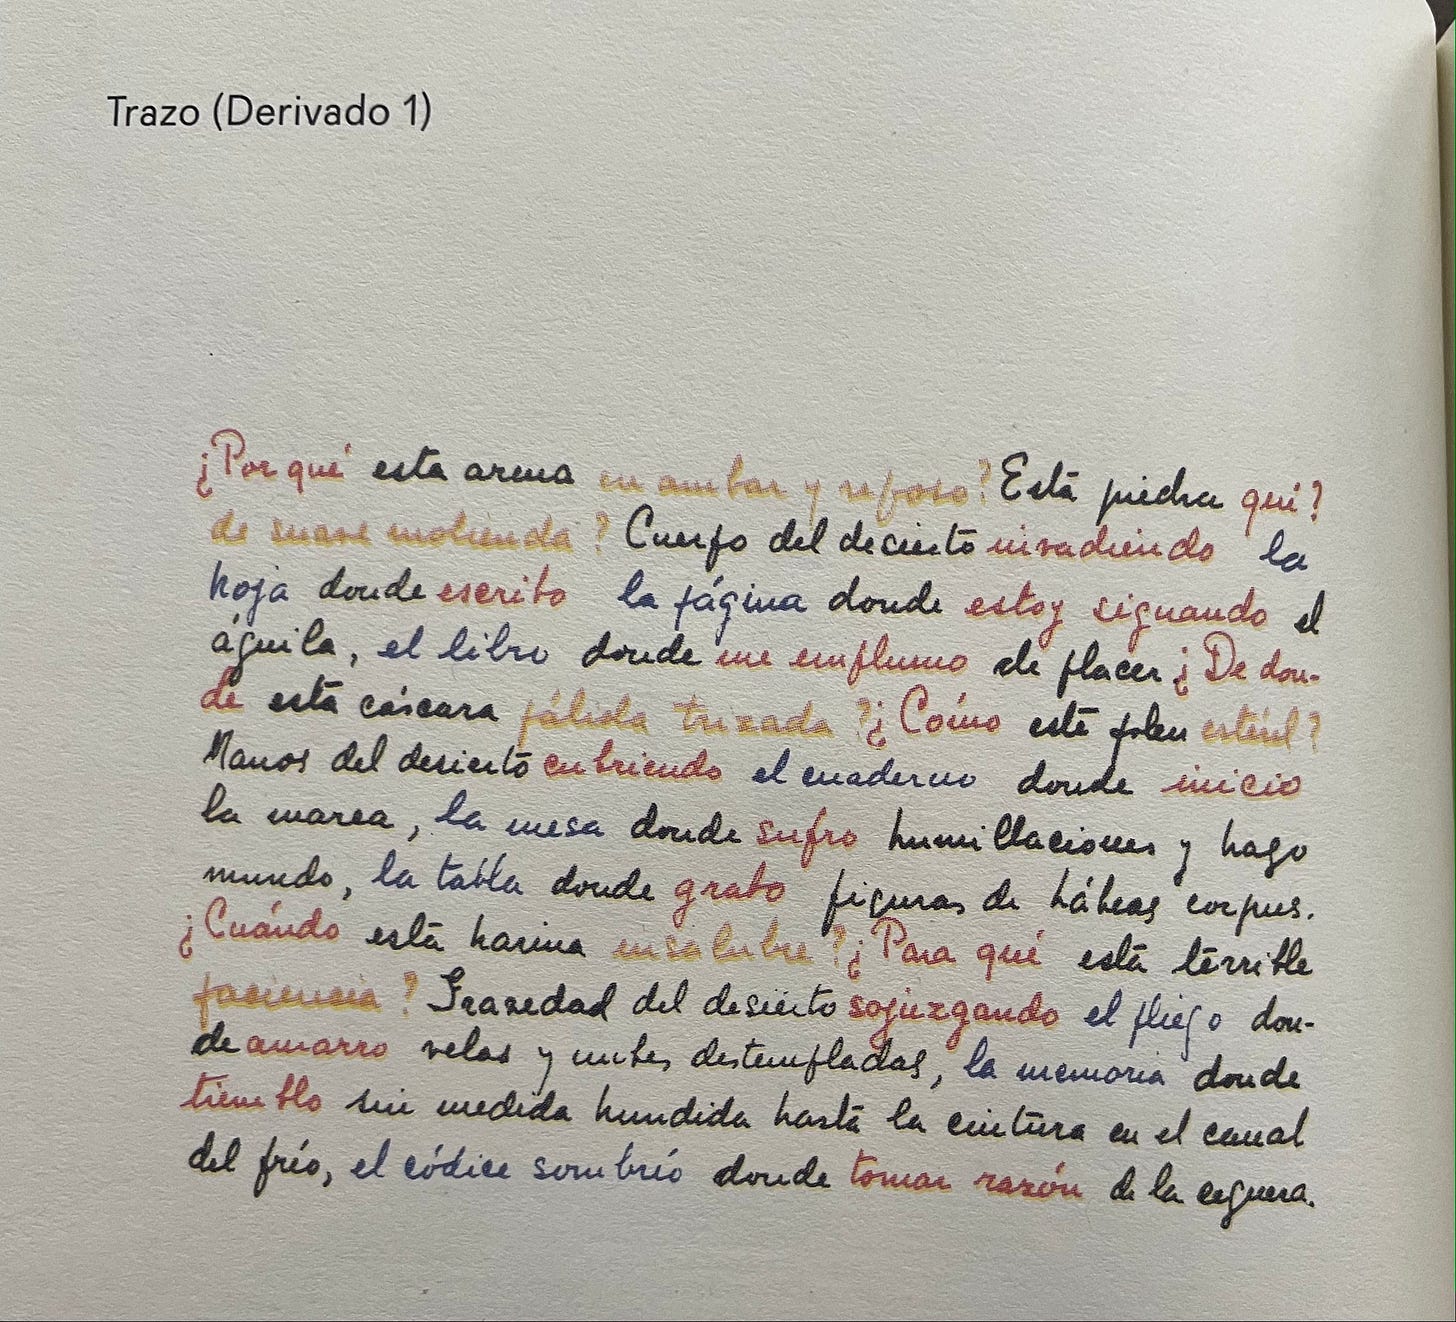 Trazo (Derivado 1)
¿Por qué esta arena en ambar y reposo? Esta piedra qué?
de suave molienda? Cuerpo del desierto invadiendo la
hoja donde escribo la página donde estoy signando el
águila, el libro donde me emplumo de placer ¿De don-
de esta cáscara pálida trizada? ¿Cómo este polen estéril?
Manos del desierto cubriendo el cuaderno donde inicio
la marea, la mesa donde sufro humillaciones y hago
mundo, la tabla donde grabo figuras de hábeas corpus.
¿Cuándo esta harina insalubre? ¿Para qué esta terrible
paciencia? Gravedad del desierto sojuzgando el pliego don-
de amarro velas y nubes destempladas, la memoria donde
tiemblo sin medida hundida hasta la cintura en el canal
del frío, el códice sombrío donde tomar razón de la ceguera.